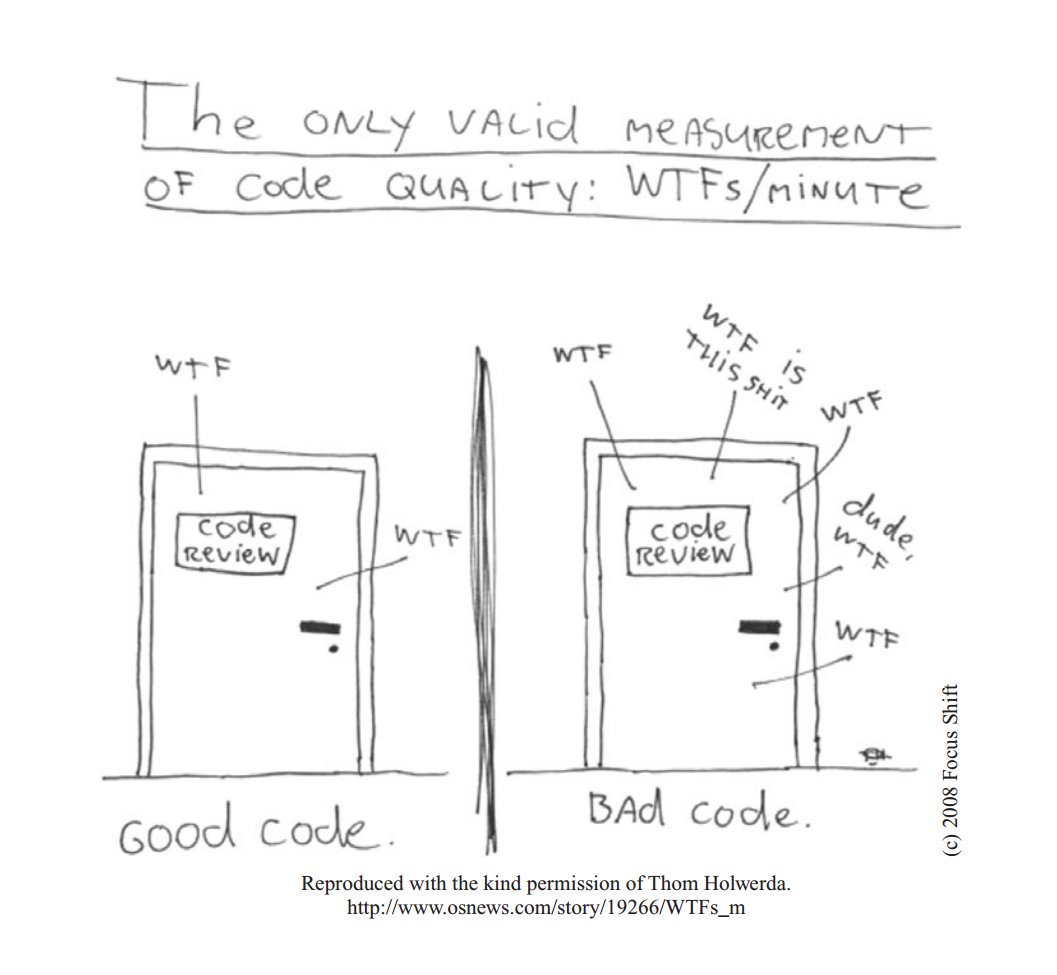 The ONLY VALid MEASUREMENT
OF Code QUALITY: WTFs/MINUTE
WTF
Code
REVIEW
WTF
GOOD Code.
WTF
WTF is
THiS SHiT
WTF
dude,
WTF
Code
REVIEW
WTF
BAd Code.
(c) 2008 Focus Shift
Reproduced with the kind permission of Thom Holwerda.
http://www.osnews.com/story/19266/WTFs_m